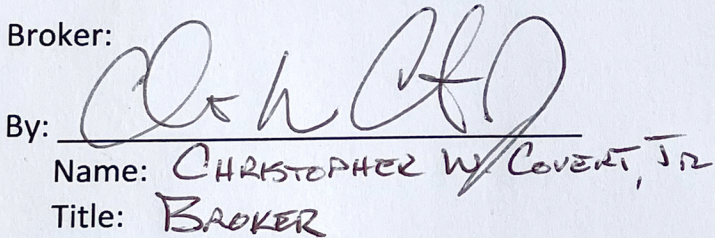 Broker:
By:
Name: CHRISTOPHER W. COVERT, JR
Title: BROKER